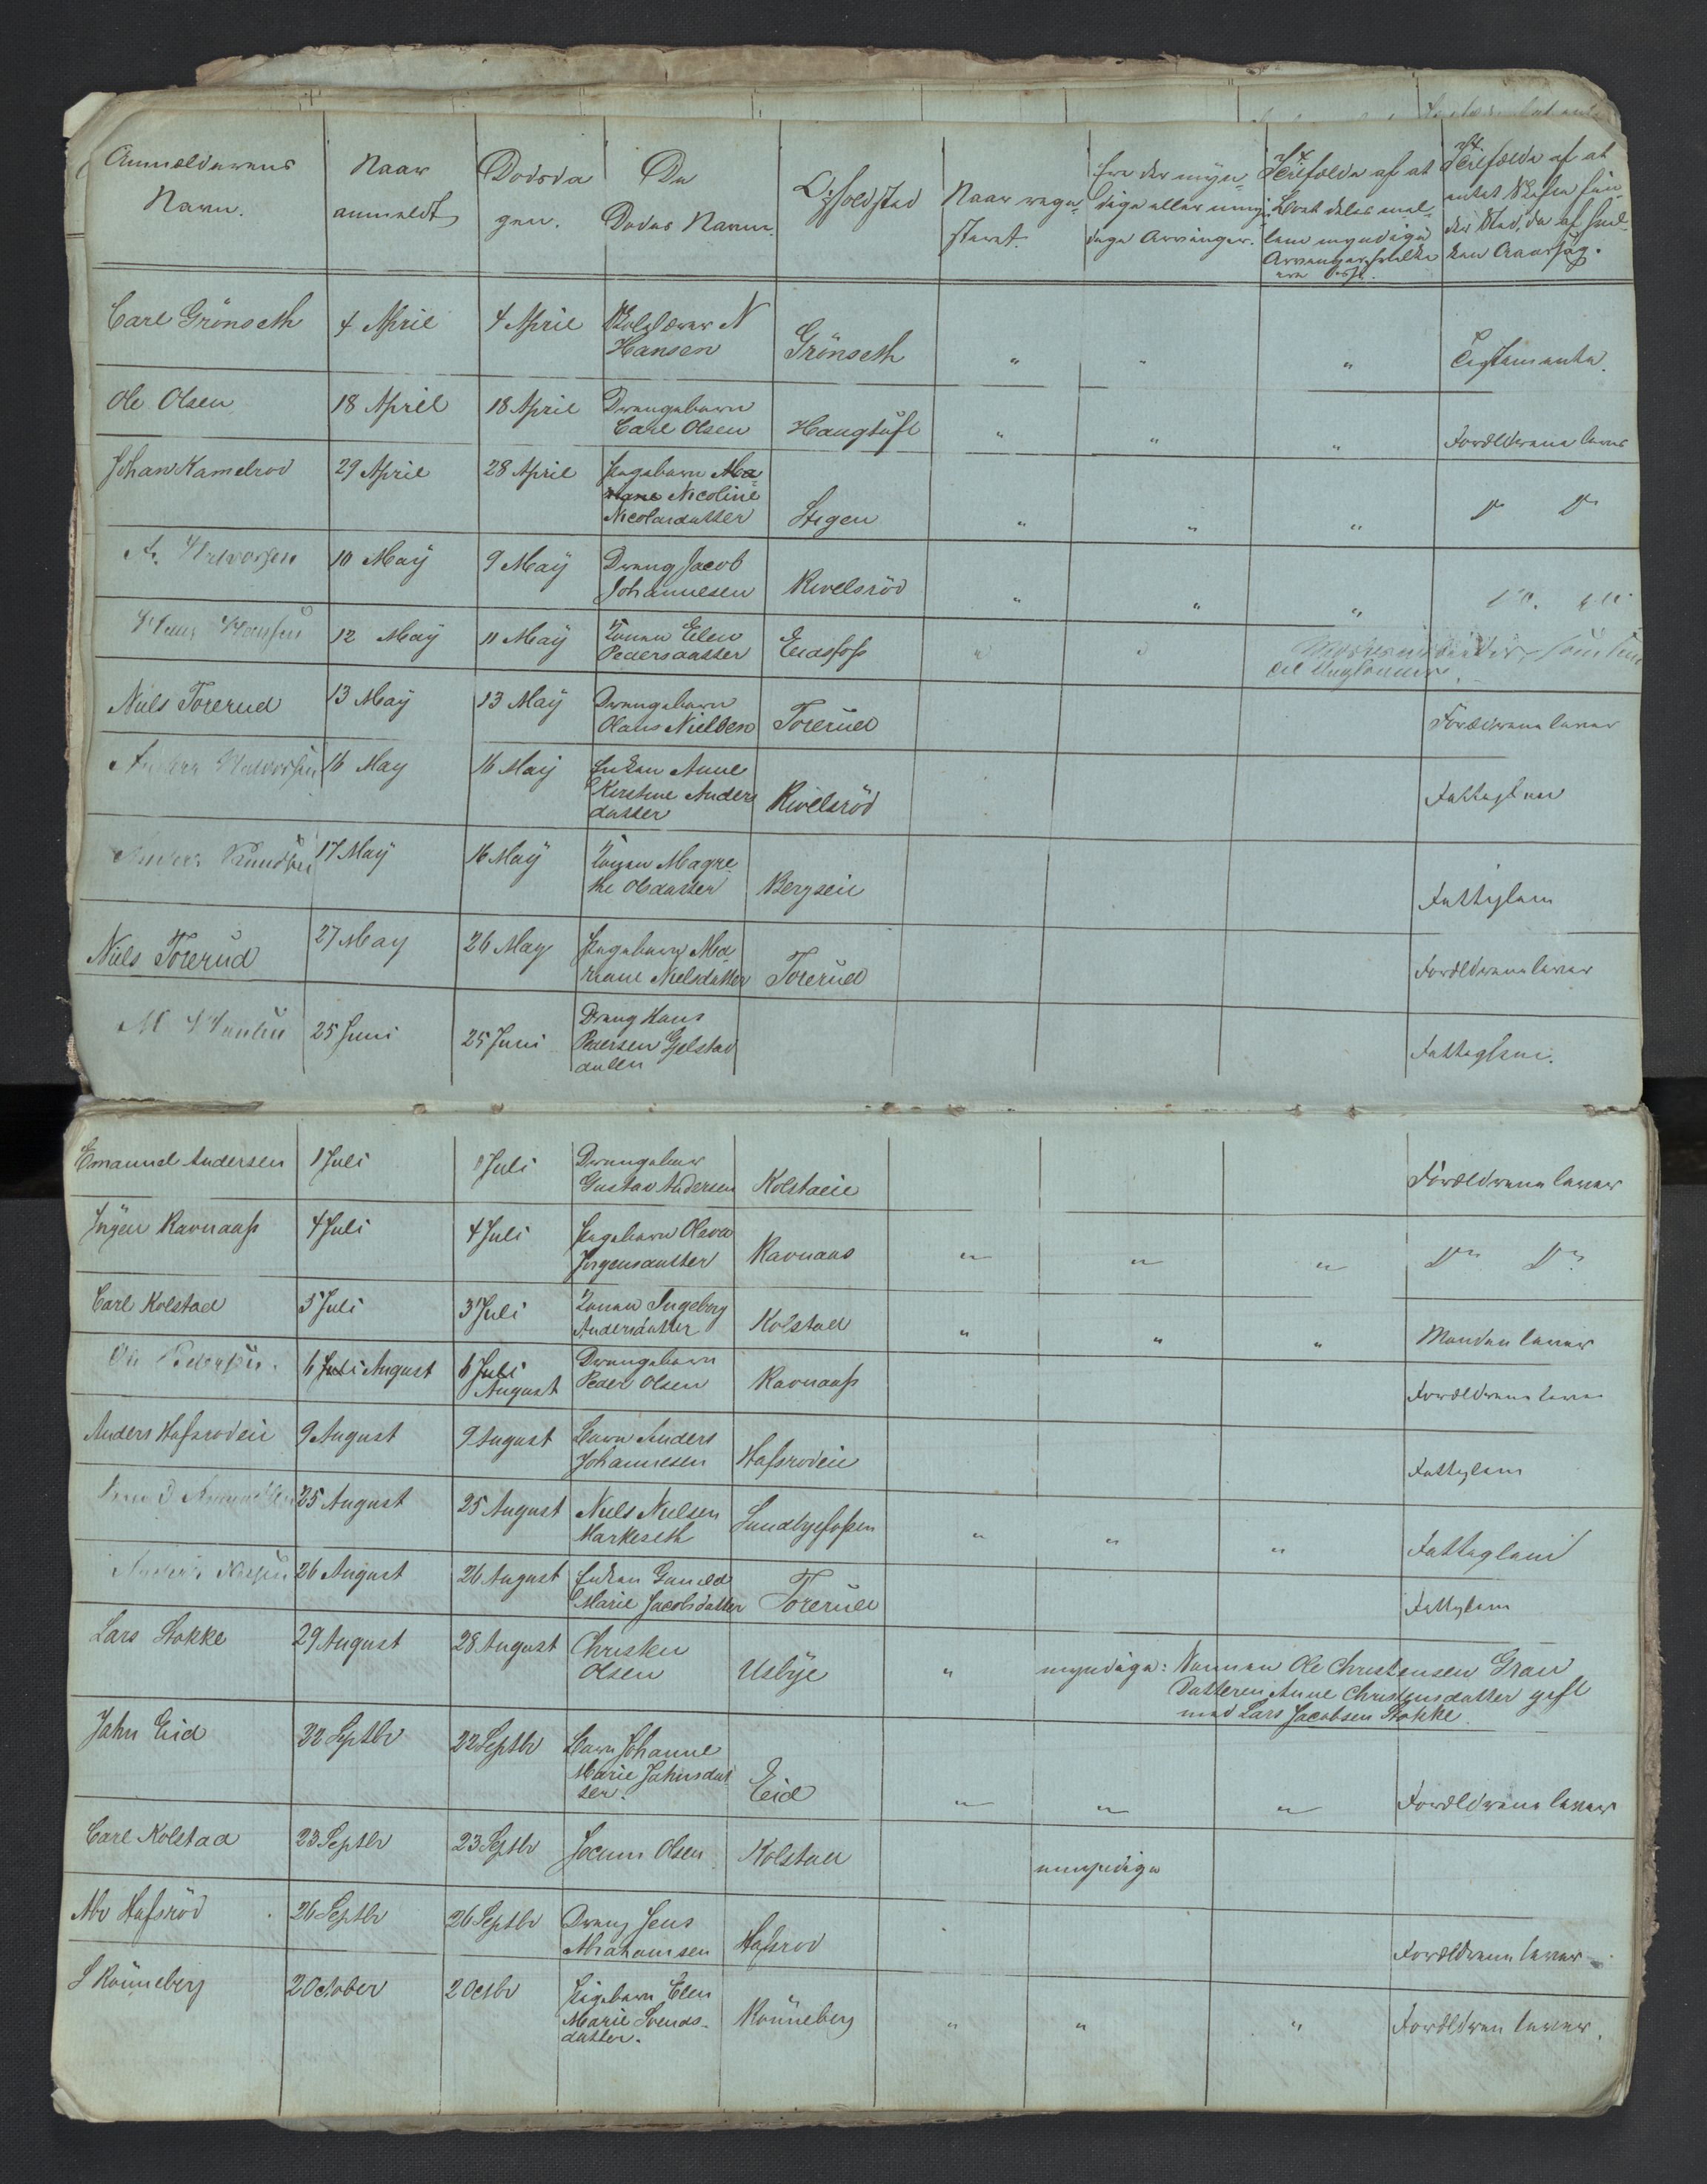 Anmelderens
Navn.
Naar
anmeldt
Dødsda
gen.
De
Dødes Navn.
Opholdsted
Naar regi-
streret.
Ere der myn-
dige eller umyn-
dige Arvinger.
I Tilfælde af at
Boet deles mel-
lem myndige
Arvinger, hvilke
ere disse.
I Tilfælde af at
intet Skifte fin-
der Sted, da af hvil-
ken Aarsag.
Carl Grönseth 4 April 4 April Skolelærer N
Hansen Grönseth " " " Testamente.
Ole Olsen 18 April 18 April Drengebarn
Carl Olsen Haugtuft " " " Forældrene lever
Johan Kamelrod 29 April 28 April Pigebarn Ma
riane Nicoline
Nicolaidatter Stigen " " " Do Do
A. Halvorsen 10 Maÿ 9 Maÿ Dreng Jacob
Johannesen Kivelsröd " " " Do. Do.
Hans Hansen 12 Maÿ 11 Maÿ Konen Elen
Pedersdatter Eidsfoss " "
Niels Torerud 13 Maÿ 13 Maÿ Drengebarn
Olaus Nielsen Torerud Forældrene lever
Anders Halvorsen 16 May 16 Maÿ Enken Anne
Kirstine Anders
datter Kivelsröd Fattiglem
Anders Knudsen 17 Maÿ 16 Maÿ Konen Magre
the Olsdatter Bergseie Fattiglem
Niels Torerud 27 May 26 May Pigebarn Ma
riane Nielsdatter Torerud Forældrene lever
M Hansen 25 Juni 25 Juni Dreng Hans
Pedersen Gjelstad
dalen Fattiglem.
Emanuel Andersen 1 Juli 1 Juli Drengebarn
Gustav Andersen Kolstaeie Forældrene lever
Jörgen Ravnaas 4 Juli 4 Juli Pigebarn Oleva
Jörgensdatter Ravnaas " " " Do Do
Carl Kolstad 5 Juli 3 Juli Konen Ingeborg
Andersdatter Kolstad " " " Manden lever
Ole Pedersen. 6 Juli August 6 Juli
August Drengebarn
Peder Olsen Ravnaas Forældrene lever
Anders Hafsrodeie 9 August 9 August Barn Anders
Johannesen Hafsrodeie Fattiglem
25 August 25 August Niels Nielsen
Markeseth Sundbyefossen " " " Fattiglem
Anders 26 August 26 August Enken Gunild
Marie Jacobsdatter Torerud Fattiglem
Lars Stokke 29 August 28 August Christen
Olsen Usbÿe " myndige: Sønnen Ole Christensen Gran
Datteren Anne Christensdatter gift
med Lars Jacobsen Stokke.
Jahn Eid 22 Septbr 22 Septbr Barn Johanne
Marie Jahnsdat
ter. Eid " " " Forældrene lever
Carl Kolstad 23 Septbr 23 Septbr Jocum Olsen Kolstad umyndige
Abr Hafsröd 26 Septbr 26 Septbr Dreng Jens
Abrahamsen Hafsrod Forældrene lever
S Rönneberg 2 October 2 Octbr Pigebarn Elen
Marie Svends-
datter. Rönneberg " " " Forældren lever.